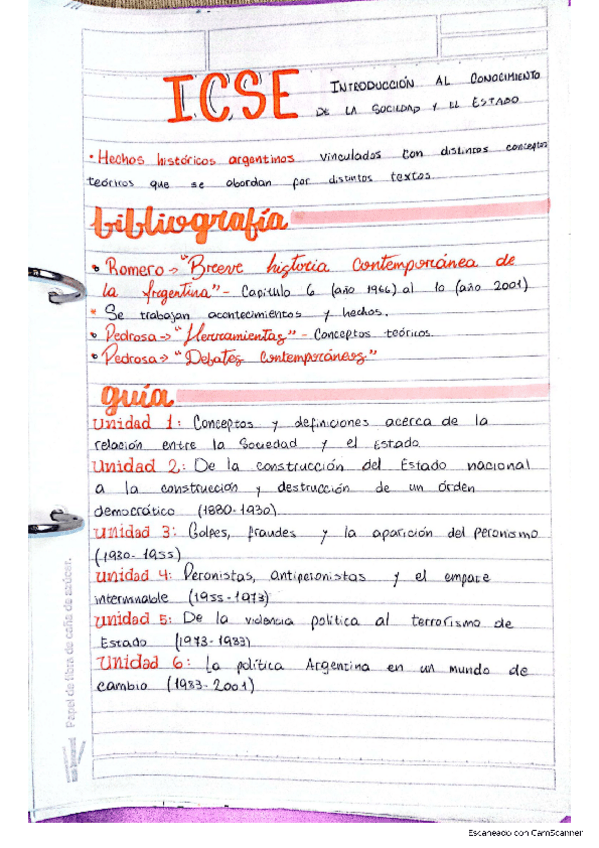 ICSE INTRODUCCIÓN AL CONOCIMIENTO
DE LA SOCIEDAD Y EL ESTADO
• Hechos históricos argentinos vinculados con distintos conceptos
teóricos que se abordan por distintos textos
bibliografía
• Romero -> "Breve historia Contemporánea de
la Argentina" - Capitulo 6 (año 1966) al 10 (año 2001)
• Se trabajan acontecimientos y hechos.
• Pedrosa -> "Herramientas" - Conceptos teóricos.
• Pedrosa -> "Debates Contemporáneos"
guía
Unidad 1: Conceptos y definiciones acerca de la
relación entre la Sociedad y el Estado
Unidad 2: De la construcción del Estado nacional
a la construcción y destrucción de un órden
democrático (1880-1930)
Unidad 3: Golpes, fraudes y la aparición del peronismo
(1930-1955)
Unidad 4: Peronistas, antiperonistas y el empate
interminable (1955-1973)
Unidad 5: De la violencia política al terrorismo de
Estado (1973-1983)
Unidad 6: La política Argentina en un mundo de
cambio (1983-2001)
Papel de fibra de caña de azúcar.
Escaneado con CamScanner